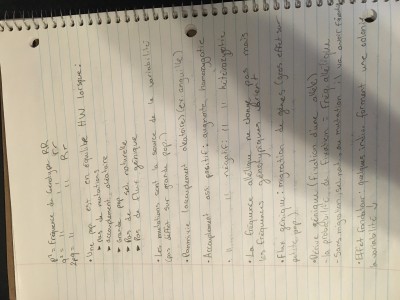 p² = Fréquence du Genotype RR
q² = " " " rr
2pq = " " " Rr
• Une pop est en équilibre HW lorsque :
▸ pas de mutations
▸ accouplement aléatoire
▸ Grande pop
▸ Pas de sel naturelle
▸ Pas de flux génique
• Les mutations sont la source de la variabilité
(pas d'effet sur grande pop.)
• Panmixie (accouplement aléatoire) (ex: anguille)
• Accouplement ass positif: augmente homozygotie
• " " négatif: " " hétérozygotie
• La fréquence allélique ne change pas mais
les fréquences génotypiques
• Flux génique: migration de gènes (gros effet sur
petite pop.)
• Dérive génique (fixation d'une allèle)
- la probabilité de fixation = fréq allélique
- Sans migration, sélection ou mutation, il va avoir
• Effet fondateur: quelques indiv forment une colonie
↳ variabilité ↓